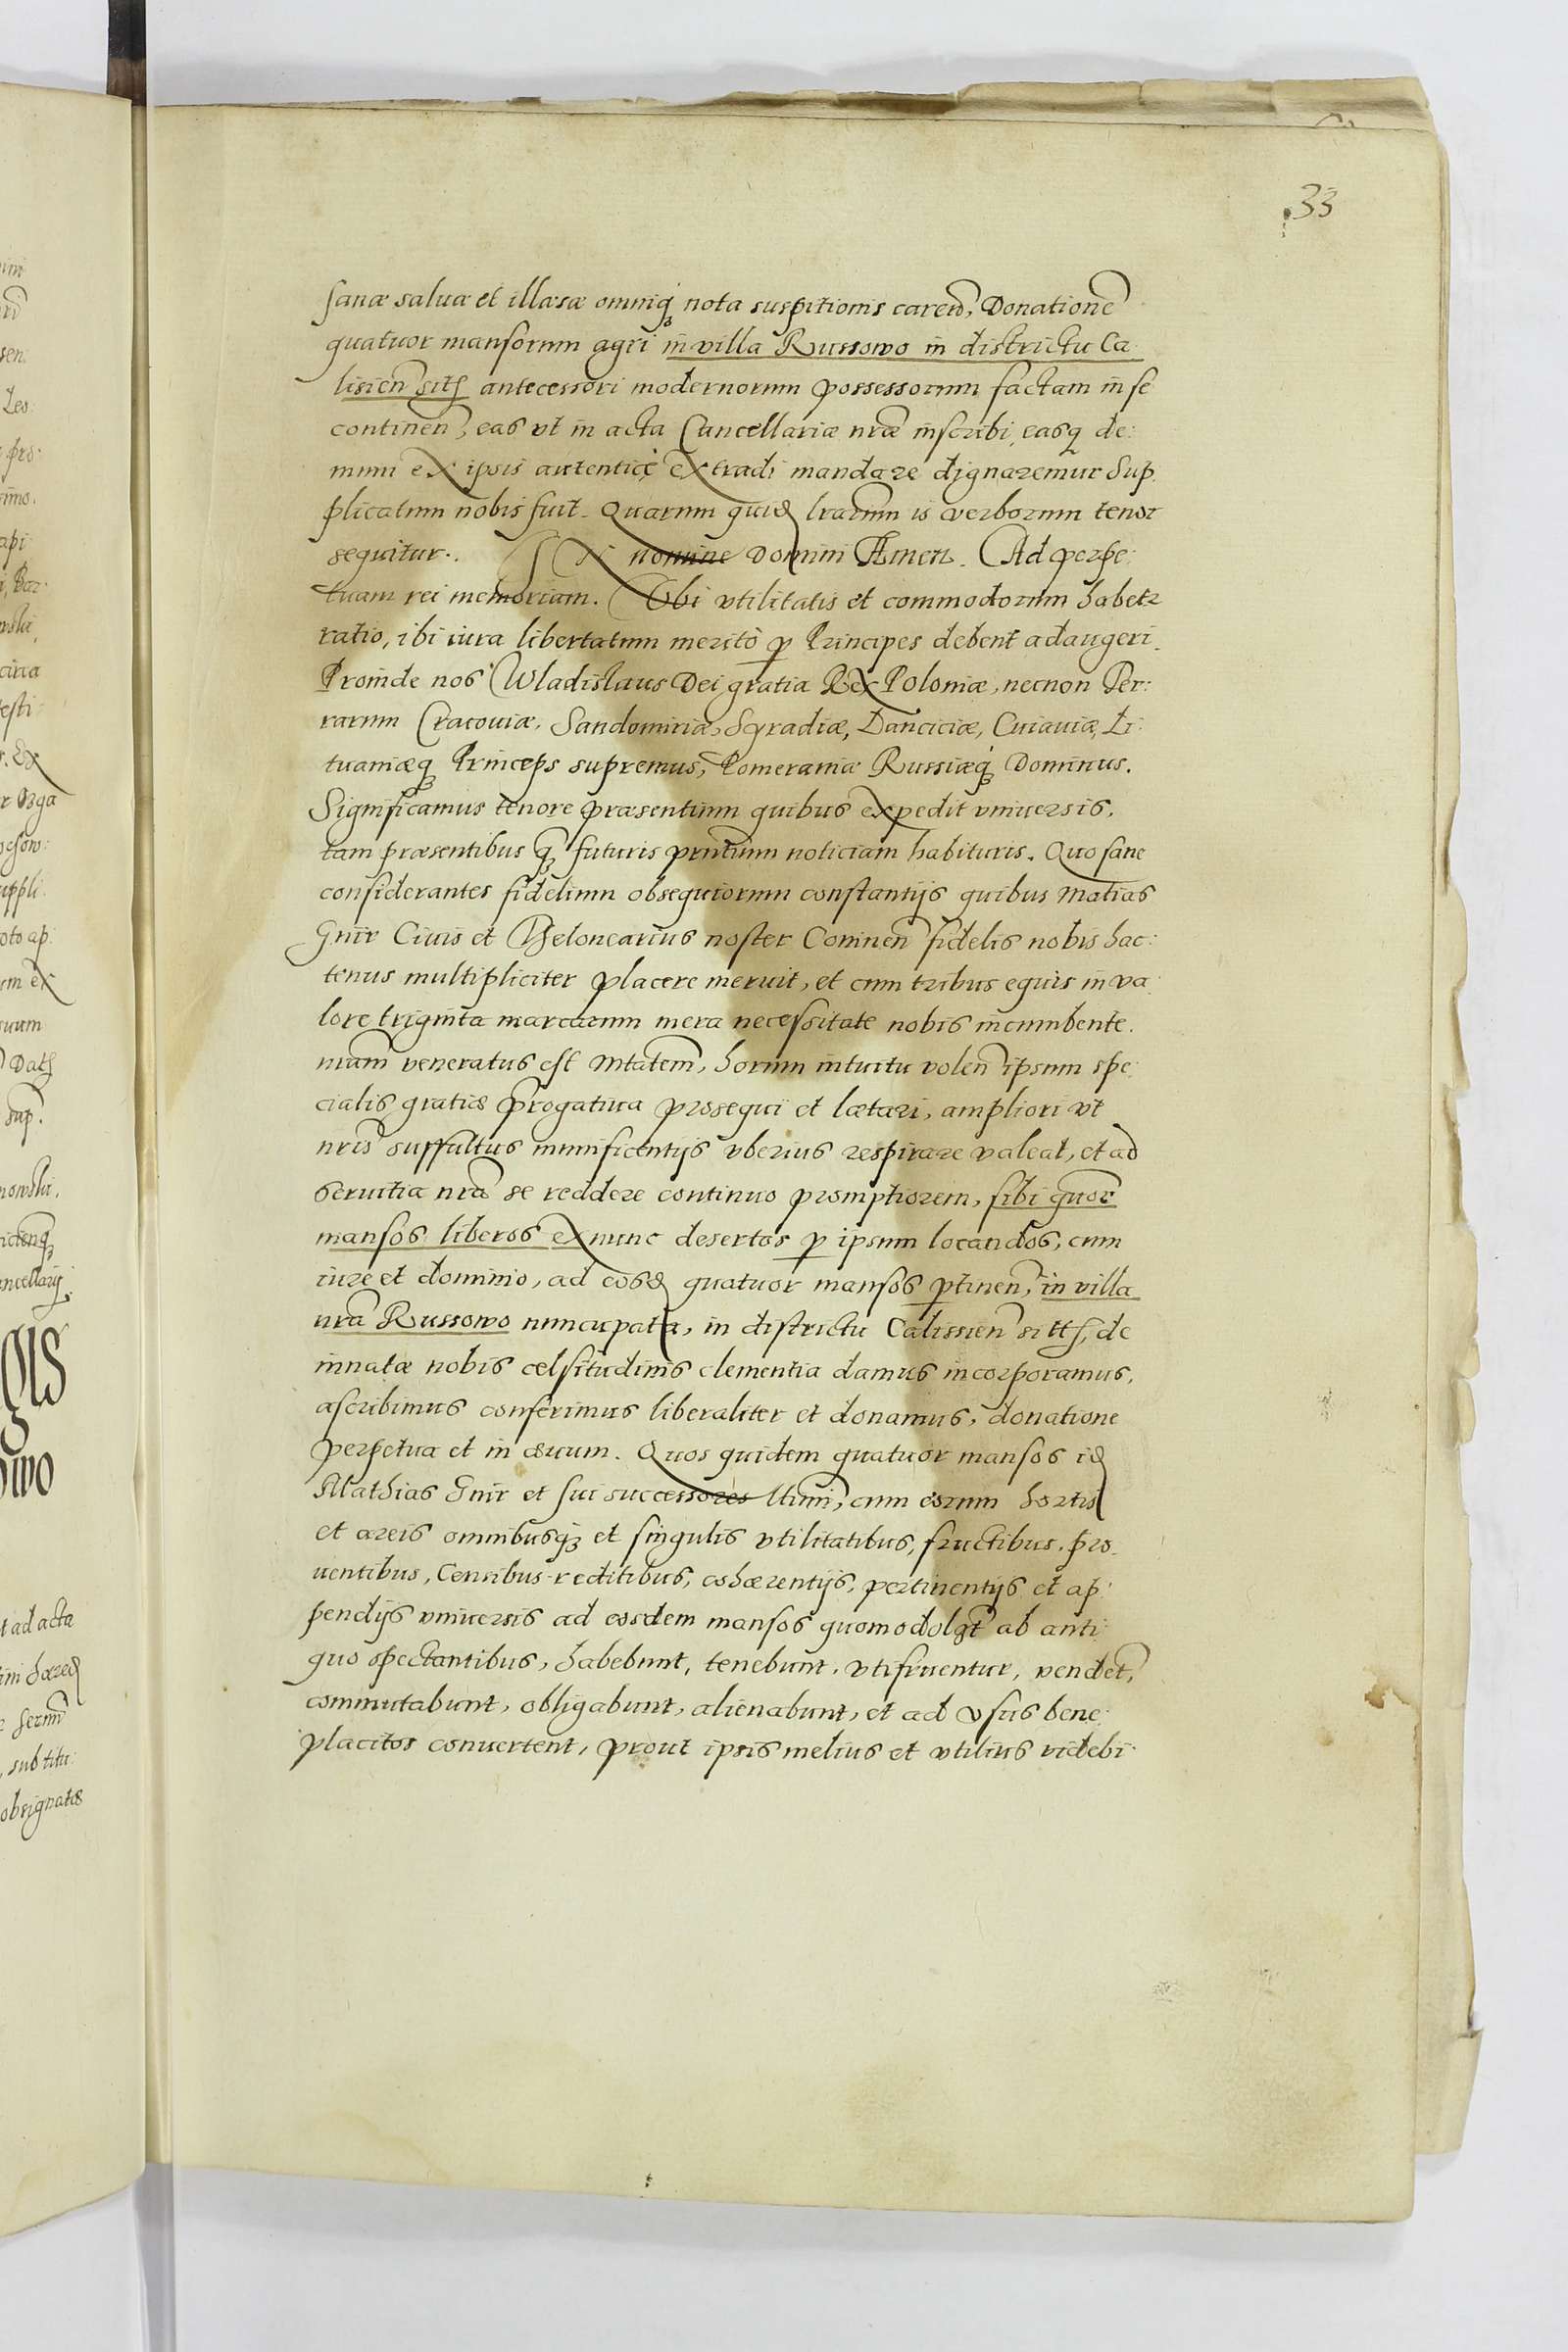 33
sanæ saluæ et illæsæ omniq́ꝫ nota suspitionis careñ, Donationẽ
quatuor mansorum agri in villa Russowo in districtu Ca
lisieñ sitꝭ antecessori modernorum possessorum factam in se
contineñ, eas vt in acta Cancellariæ nr̃æ inscribi, easqꝫ de:
mum ex ipsis autenticè extradi mandare dignaremur Sup
plicatum nobis fuit. Quarum quiđ lrarum is verborum tenor
sequitur. In nomine Domini Amen. Ad perpe:
tuam rei memoriam. Vbi vtilitatis et commodorum habetr
ratio, ibi iura libertatum meritò ꝑ Principes debent adaugeri.
Proinde nos Wladislaus Dei gratia Rex Poloniæ, necnon Ter:
rarum Cracouiæ, Sandomiriæ, Syradiæ, Lanciciæ, Cuiauiæ, Li:
tuaniæqꝫ Princeps supremus, Pomeraniæ Russiæq́ꝫ Dominus.
Significamus tenore præsentium quibus expedit vniuersis,
tam præsentibus q̃ꝫ futuris pñtium noticiam habituris. Quo sane
considerantes fidelium obsequiorum constantijs quibus Matias
Gnir Ciuis et Theloncarius noster Conineñ fidelis nobis hac:
tenus multipliciter placere meruit, et cum tribus equis in va
lore triginta marcarum mera necessitate nobis incumbente.
nr̃am veneratus est Mtatem, horum intuitu voleñ ipsum spe:
cialis gratiæ prerogatiua prosequi et lætari, ampliori vt
nr̃is suffultus munificentijs vberius respirare valeat, et ad
seruitia nr̃a se reddere continuo promptiorem, sibi q̃uor
mansos liberos ex nunc desertos ꝑ ipsum locandos, cum
iure et dominio, ad eosđ quatuor mansos ꝑtineñ, in villa
nr̃a Russowo nuncupata, in districtu Calissieñ sittꝭ, de
innatæ nobis celsitudinis clementia damus incorporamus,
ascribimus conferimus liberaliter et donamus, donatione
perpetua et in æuum. Quos quidem quatuor mansos iđ
Mathias Gnir et sui successores ltimi, cum eorum hortis
et areis omnibusq́ꝫ et singulis vtilitatibus, fructibus, pro
uentibus, Censibus reditibus, cohærentijs, pertinentijs et ap:
pendijs vniuersis ad eosdem mansos quomodolꝫt ab anti
quo spectantibus, habebunt, tenebunt, vtifruentur, vendẽt,
commutabunt, obligabunt, alienabunt, et ad vsus bene:
placitos conuertent, prout ipsis melius et vtilius videbi